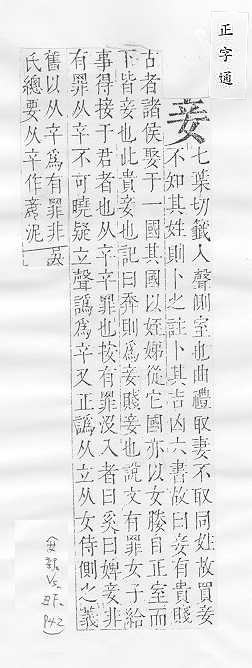 正字通
妾
七葉切籤入聲側室也曲禮取妻不取同姓故買妾
不知其姓則卜之註卜其吉凶六書故曰妾有貴賤
古者諸侯娶于一國其國以姪娣從它國亦以女媵自正室而
下皆妾也此貴妾也記曰奔則爲妾賤妾也說文有罪女子給
事得接于君者也从䇂䇂罪也按有罪没入者曰奚曰婢妾非
有罪从䇂不可曉疑立聲譌爲䇂又正譌从立从女侍側之義
舊以从䇂爲有罪非吴
氏總要从䇂作𡜈泥